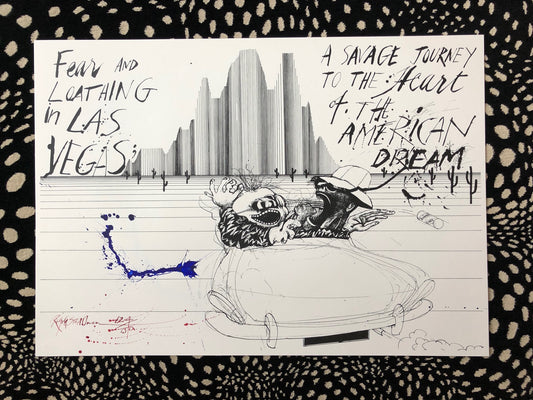 Fear AND
LOATHING
in LAS
VEGAS;
A SAVAGE JOURNEY
TO THE Heart
of THE
AMERICAN
DREAM